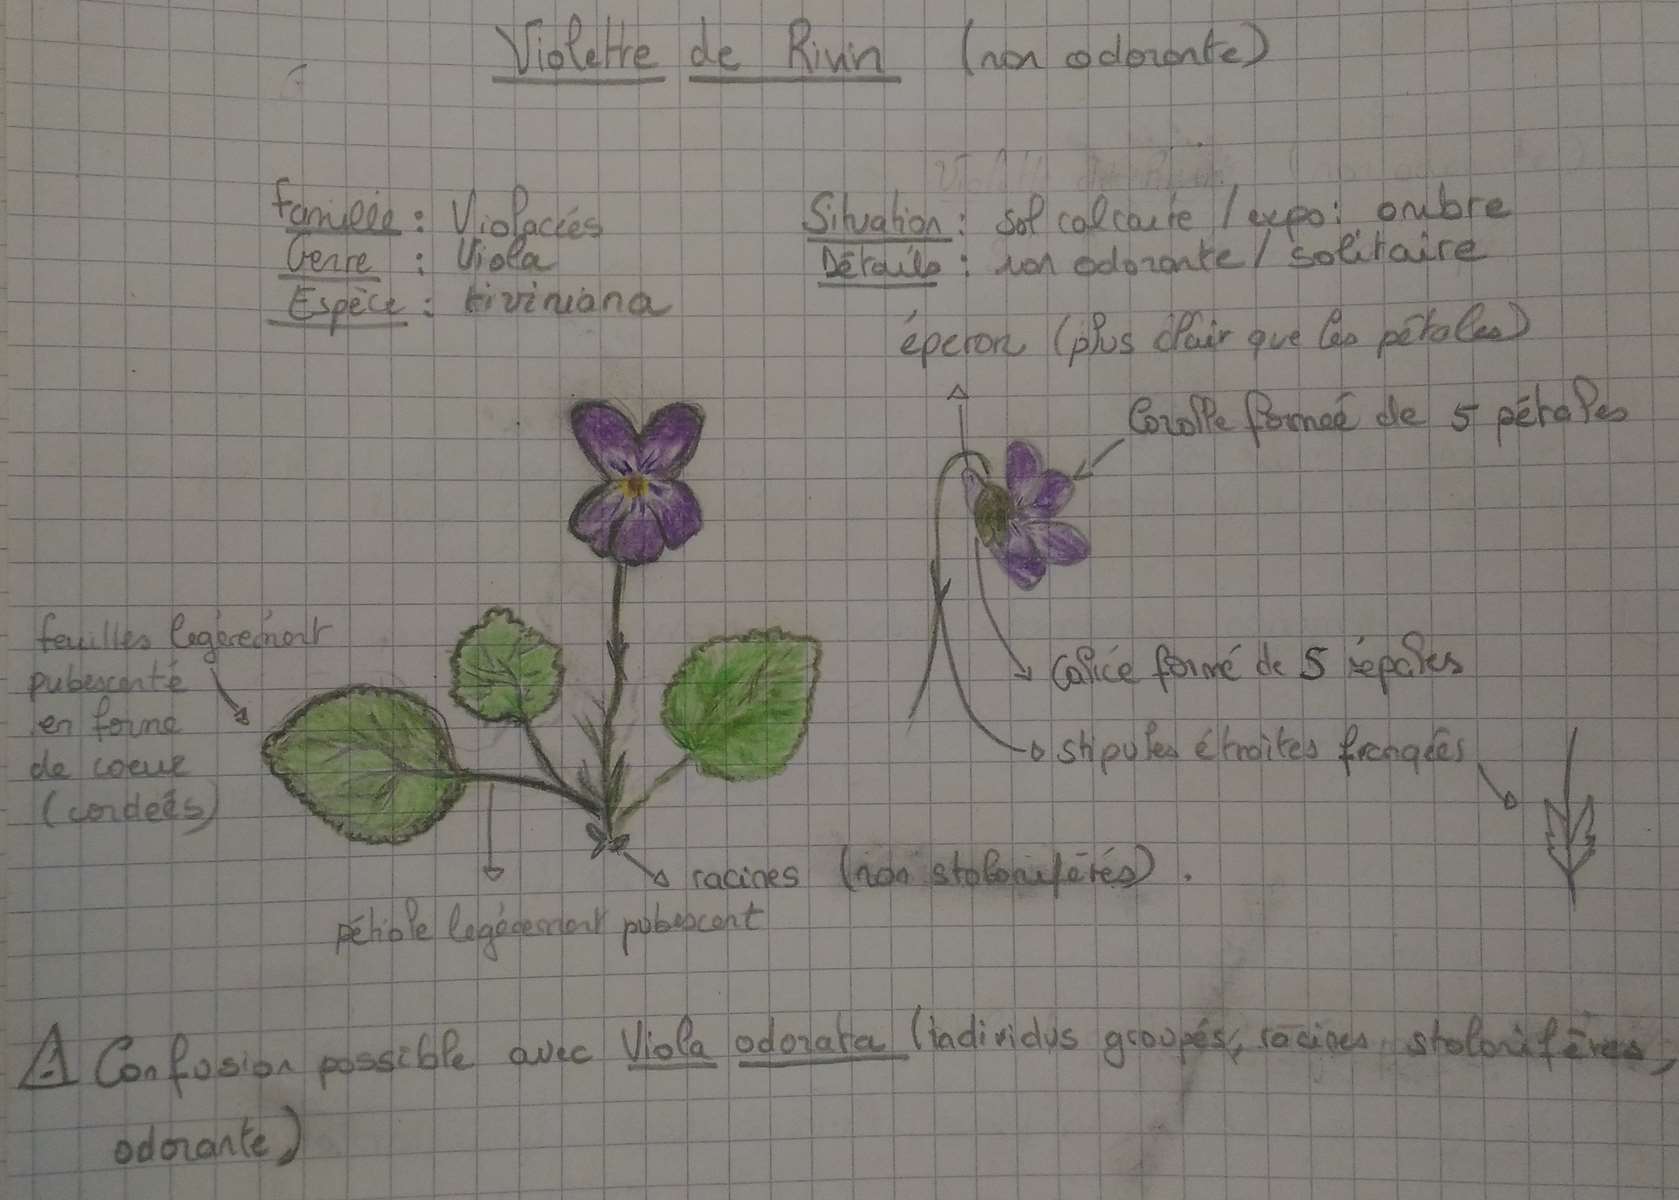 Violette de Rivin (non odorante)
famille : Violacées
Genre : Viola
Espèce : riviniana
Situation : sol calcaire / expo : ombre
Détails : non odorante / solitaire
éperon (plus clair que les pétales)
Corolle formée de 5 pétales
feuilles legèrement
pubescente
en forme
de coeur
(cordeés)
Calice formé de 5 sépales
stipules étroites frangées
racines (non stolonifères).
pétiole legèrement pubescent
⚠ Confusion possible avec Viola odorata (individus groupés, racines stolonifères,
odorante)